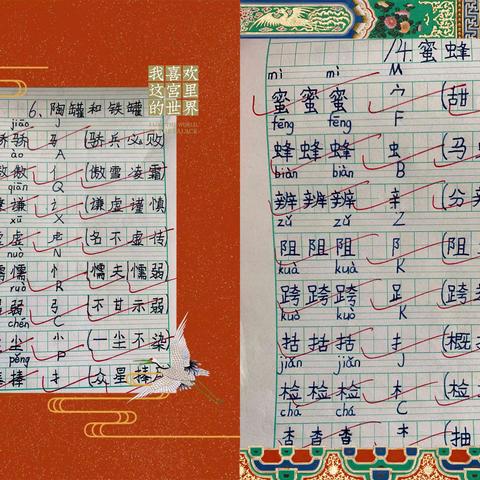 我喜欢
这宫里
的世界
6、陶罐和铁罐
jiāo J
骄 马 (骄兵必败
ào A
傲 (傲雪凌霜
qiān Q
谦 讠 (谦虚谨慎
xū X
虚 虍 (名不虚传
nuò N
懦 忄 (懦夫 懦弱
ruò R
弱 弓 (不甘示弱
chén C
尘 小 (一尘不染
pěng P
捧 扌 (众星捧
14.蜜蜂
mì mì M
蜜蜜蜜 宀 (甜
fēng fēng F
蜂蜂蜂 虫 (马
biàn biàn B
辨辨辨 辛 (分辨
zǔ zǔ Z
阻阻阻 阝 (阻
kuà kuà K
跨跨跨 𧾷 (跨
kuò kuò K
括括括 扌 (概
jiǎn jiǎn J
检检检 木 (检
chá chá C
查查查 木 (抽